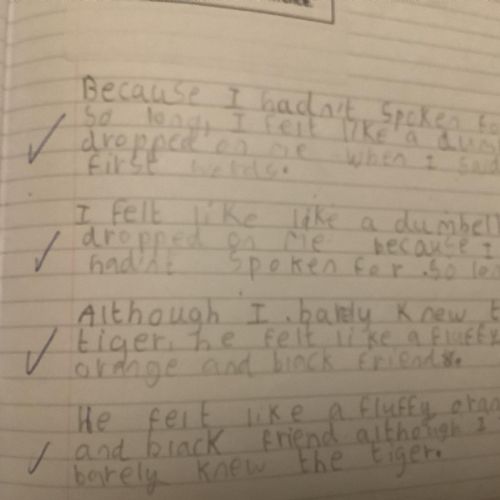 Because I hadn't spoken
so long, I felt like a
dropped on me when I
first words.
I felt like like a dumbell
dropped on me because I
hadnt spoken for so
Although I barely knew
tiger, he felt like a fluffy
orange and black friend.
He felt like a fluffy
and black friend although I
barely knew the tiger.